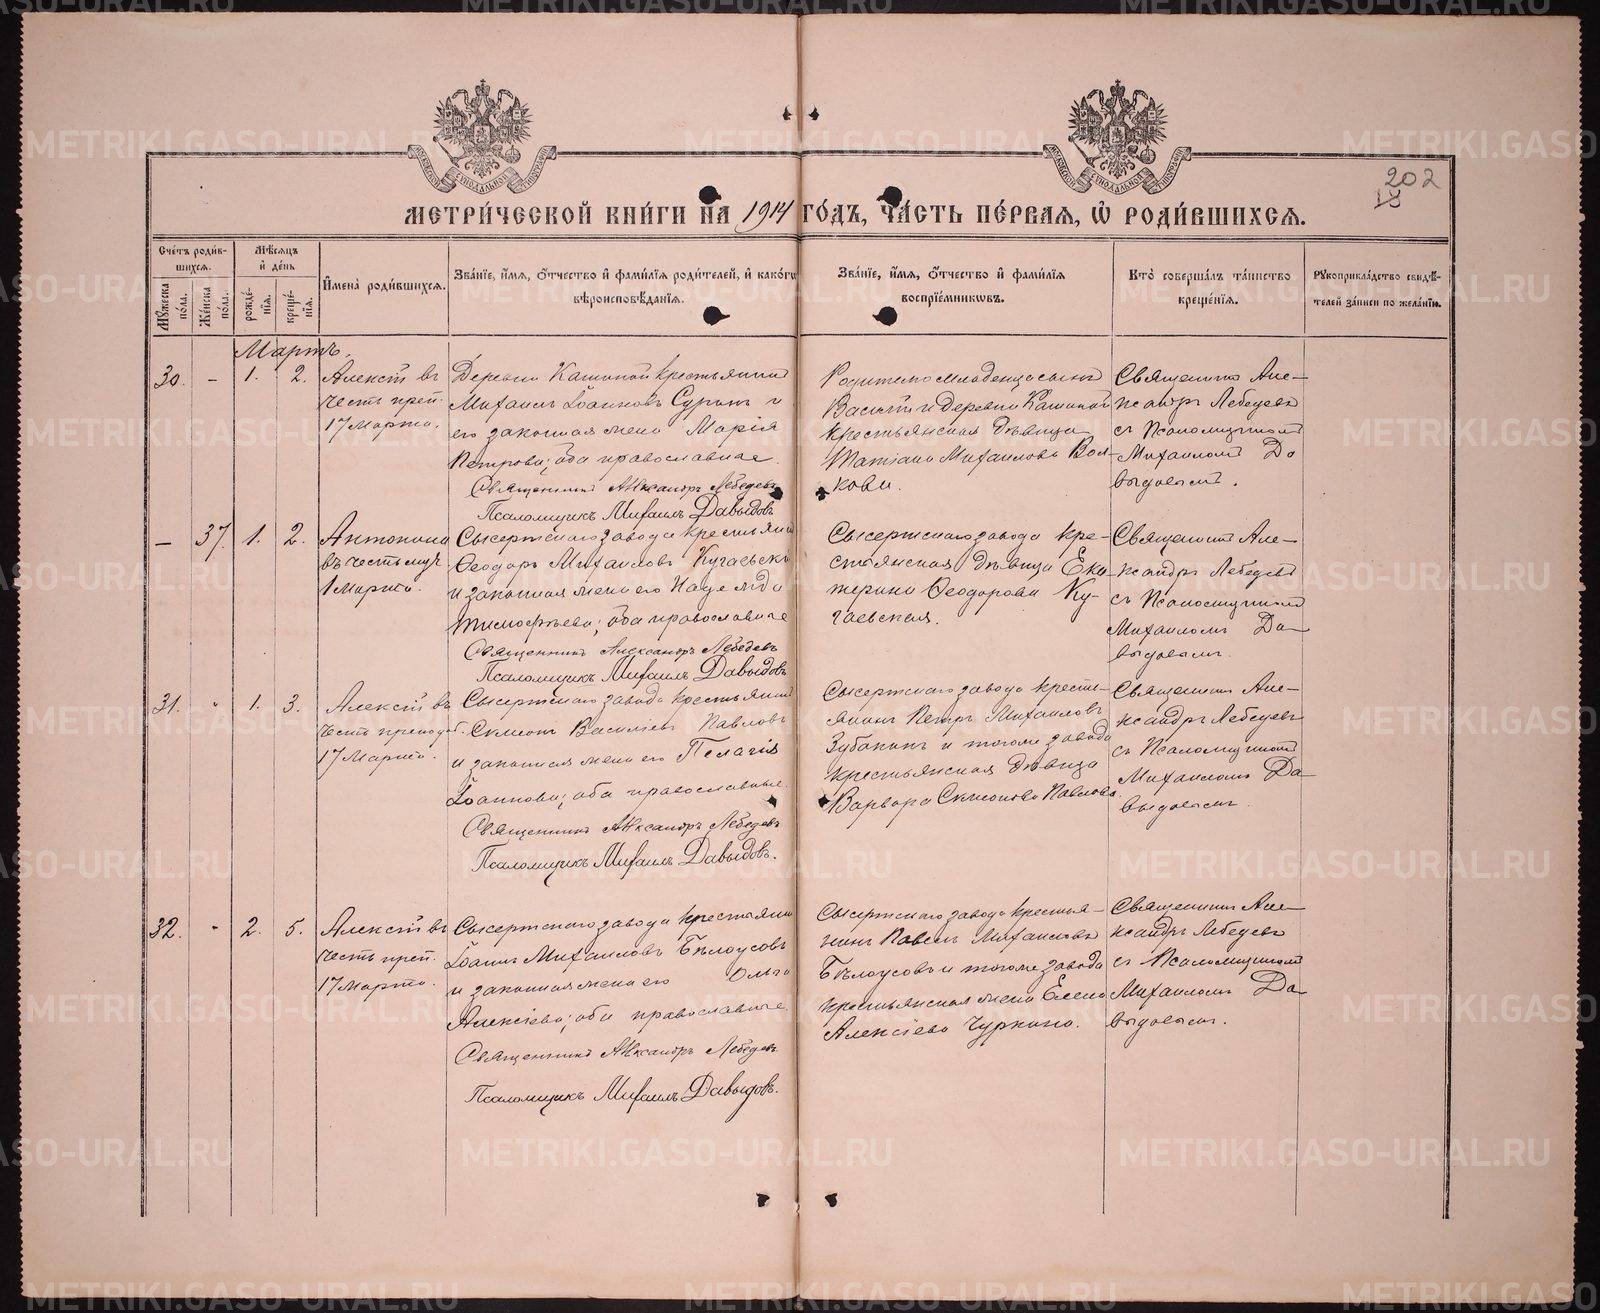 202
18
МЕТРИ́ЧЕСКОЙ КНИ́ГИ НА 1914 ГО́ДЪ, ЧА́СТЬ ПЕ́РВАЯ, Ѡ РОДИ́ВШИХСЯ.
Сче́тъ роди́в-
шихся.
Му́жеска по́ла.
Же́нска по́ла.
Мѣ́сяцъ
и де́нь
рожде́-
нія.
креще́-
нія.
Имена̀ роди́вшихся.
Зва́ніе, и́мя, о́тчество и фами́лія роди́телей, и како́гѡ
вѣроисповѣ́данія.
Зва́ніе, и́мя, о́тчество и фами́лія
воспріе́мниковъ.
Кто̀ соверша́лъ та́инство
креще́нія.
Рукоприкла́дство свидѣ́-
телей за́писи по жела́нію.
Мартъ.
30. - 1. 2.
Алексій въ
честь преп.
17 Марта.
Деревни Кашиной крестьянинъ
Михаилъ Іоанновъ Суринъ и
его законная жена Марія
Петрова; оба православные.
Священникъ Александръ Лебедевъ
Псаломщикъ Михаилъ Давыдовъ
Родителю младенца сынъ
Василій и деревни Кашиной
крестьянская дѣвица
Татіана Михаилова Вол-
кова.
Священникъ Але-
ксандръ Лебедевъ
съ Псаломщикомъ
Михаиломъ Да
выдовымъ.
- 37. 1. 2.
Антонина
въ честь муч.
1 Марта.
Сысертскаго завода крестьянинъ
Ѳеодоръ Михаиловъ Кугаевскій
и законная жена его Надежда
Тимоѳеева; оба православные
Священникъ Александръ Лебедевъ
Псаломщикъ Михаилъ Давыдовъ
Сысертскаго завода кре-
стьянская дѣвица Ека-
терина Ѳеодорова Ку-
гаевская.
Священникъ Але-
ксандръ Лебедевъ
съ Псаломщикомъ
Михаиломъ Да-
выдовымъ.
31. - 1. 3.
Алексій въ
честь преподоб.
17 Марта.
Сысертскаго завода крестьянинъ
Симеонъ Василіевъ Павловъ
и законная жена его Пелагія
Іоаннова; оба православные.
Священникъ Александръ Лебедевъ
Псаломщикъ Михаилъ Давыдовъ.
Сысертскаго завода кресть-
янинъ Петръ Михаиловъ
Зубакинъ и тогоже завода
крестьянская дѣвица
Варвара Симеонова Павлова.
Священникъ Але-
ксандръ Лебедевъ
съ Псаломщикомъ
Михаиломъ Да-
выдовымъ.
32. - 2. 5.
Алексій въ
честь преп.
17 Марта.
Сысертскаго завода крестьянинъ
Іоаннъ Михаиловъ Бѣлоусовъ
и законная жена его Ольга
Алексіева; оба православные.
Священникъ Александръ Лебедевъ
Псаломщикъ Михаилъ Давыдовъ.
Сысертскаго завода крестья-
нинъ Павелъ Михаиловъ
Бѣлоусовъ и тогоже завода
крестьянская жена Елена
Алексіева Чуркина.
Священникъ Але-
ксандръ Лебедевъ
съ Псаломщикомъ
Михаиломъ Да
выдовымъ.
METRIKI.GASO-URAL.RU